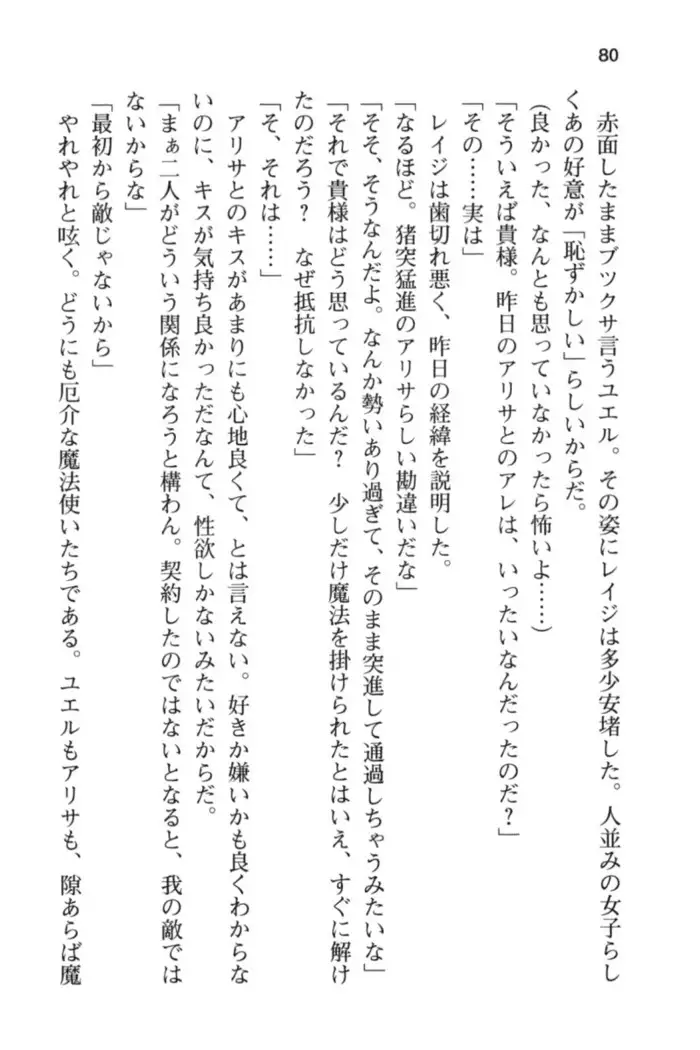 80
赤面したままブツクサ言うユエル。その姿にレイジは多少安堵した。人並みの女子らし
くあの好意が「恥ずかしい」らしいからだ。
(良かった、なんとも思っていなかったら怖いよ……)
「そういえば貴様。昨日のアリサとのアレは、いったいなんだったのだ？」
「その……実は」
レイジは歯切れ悪く、昨日の経緯を説明した。
「なるほど。猪突猛進のアリサらしい勘違いだな」
「そそ、そうなんだよ。なんか勢いあり過ぎて、そのまま突進して通過しちゃうみたいな」
「それで貴様はどう思っているんだ？　少しだけ魔法を掛けられたとはいえ、すぐに解け
たのだろう？　なぜ抵抗しなかった」
「そ、それは……」
アリサとのキスがあまりにも心地良くて、とは言えない。好きか嫌いかも良くわからな
いのに、キスが気持ち良かっただなんて、性欲しかないみたいだからだ。
「まぁ二人がどういう関係になろうと構わん。契約したのではないとなると、我の敵では
ないからな」
「最初から敵じゃないから」
やれやれと呟く。どうにも厄介な魔法使いたちである。ユエルもアリサも、隙あらば魔